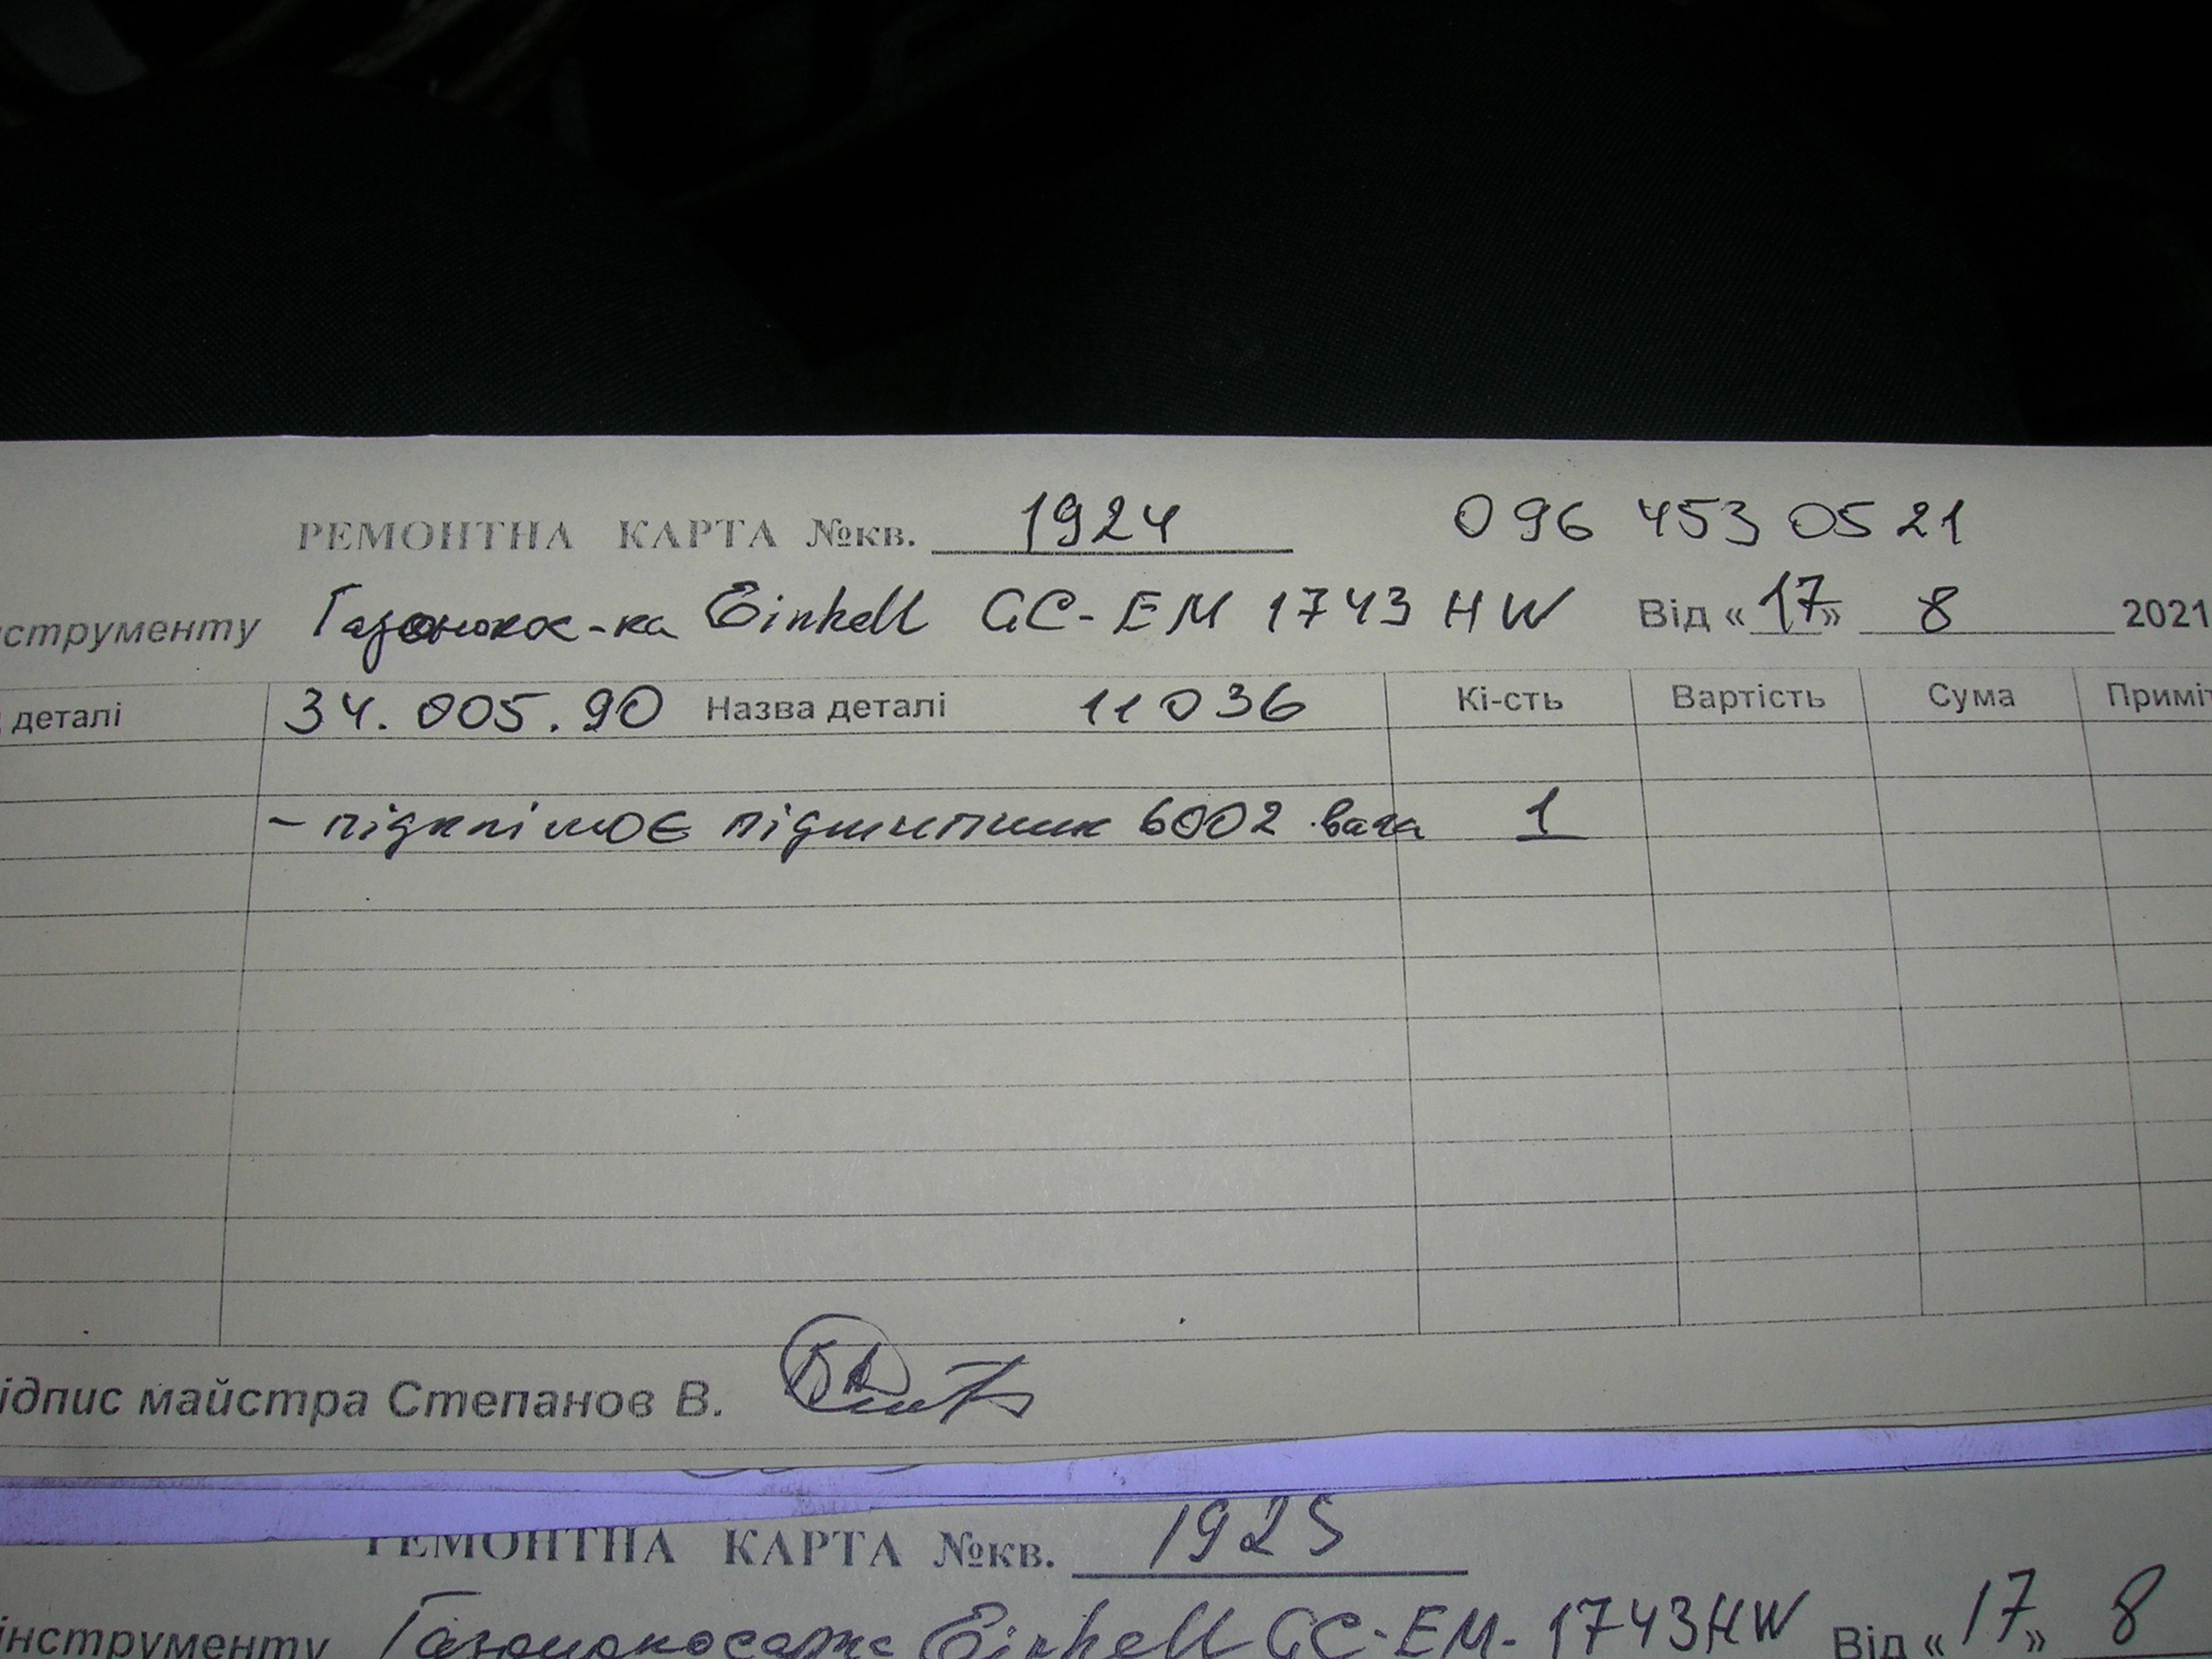 РЕМОНТНА КАРТА №кв. 1924 096 453 05 21
струменту Газонокос-ка Einhell GC-EM 1743 HW Від «17» 8 2021
деталі 34.005.90 Назва деталі 11036 Кі-сть Вартість Сума Приміт
- підклінює підшипник 6002 вала 1
ідпис майстра Степанов В.
РЕМОНТНА КАРТА №кв. 1925
інструменту Газонокосарка Einhell GC-EM-1743HW Від «17» 8